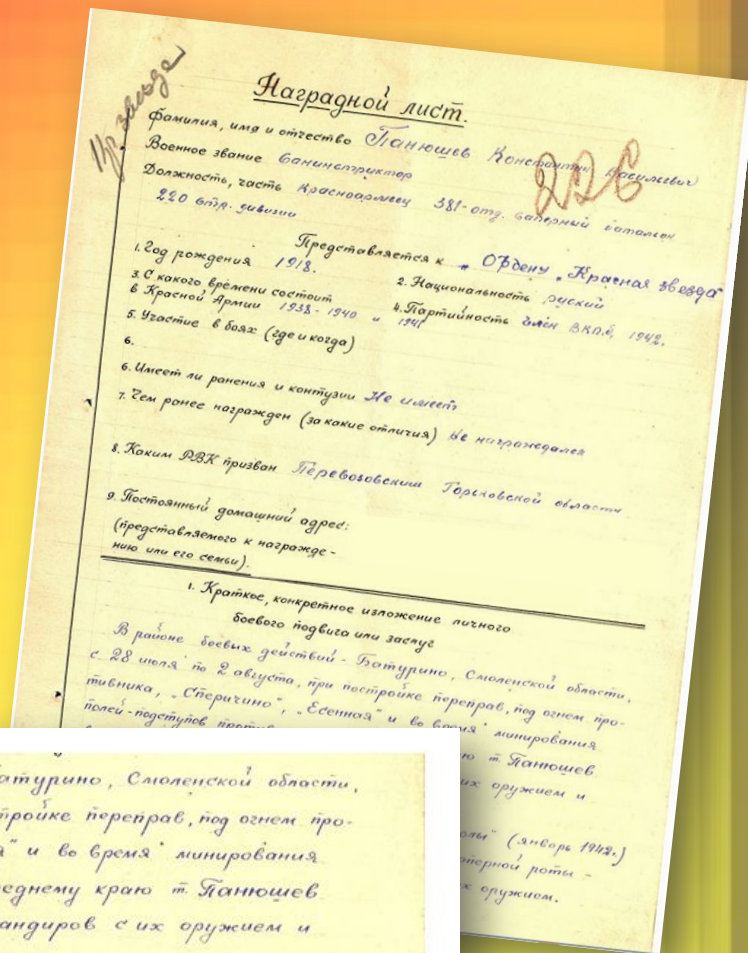 Кр. звезда
Наградной лист.
Фамилия, имя и отчество Панюшев Константин Васильевич
226
Военное звание Санинструктор
Должность, часть Красноармеец 381-отд. саперный батальон
220 стр. дивизии
Представляется к „Ордену „Красная звезда"
1. Год рождения 1918.
2. Национальность руский
3. С какого времени состоит
в Красной Армии 1938-1940 и 1941
4. Партийность член ВКП/б, 1942.
5. Участие в боях (где и когда)
6.
6. Имеет ли ранения и контузии Не имеет
7. Чем ранее награжден (за какие отличия) Не награждался
8. Каким РВК призван Перевозовским Горьковской области
9. Постоянный домашний адрес:
(представляемого к награжде-
нию или его семьи).
1. Краткое, конкретное изложение личного
боевого подвига или заслуг
В районе боевых действий - Батурино, Смоленской области,
с 28 июля по 2 августа, при постройке переправ, под огнем про-
тивника, „Сперичино", „Есенная" и во время минирования
полей-подступов
ю т. Панюшев
их оружием и
олы" (январь 1942.)
перной роты -
х оружием.
атурино, Смоленской области,
тройке переправ, под огнем про-
я" и во время минирования
еднему краю т. Панюшев
андиров с их оружием и